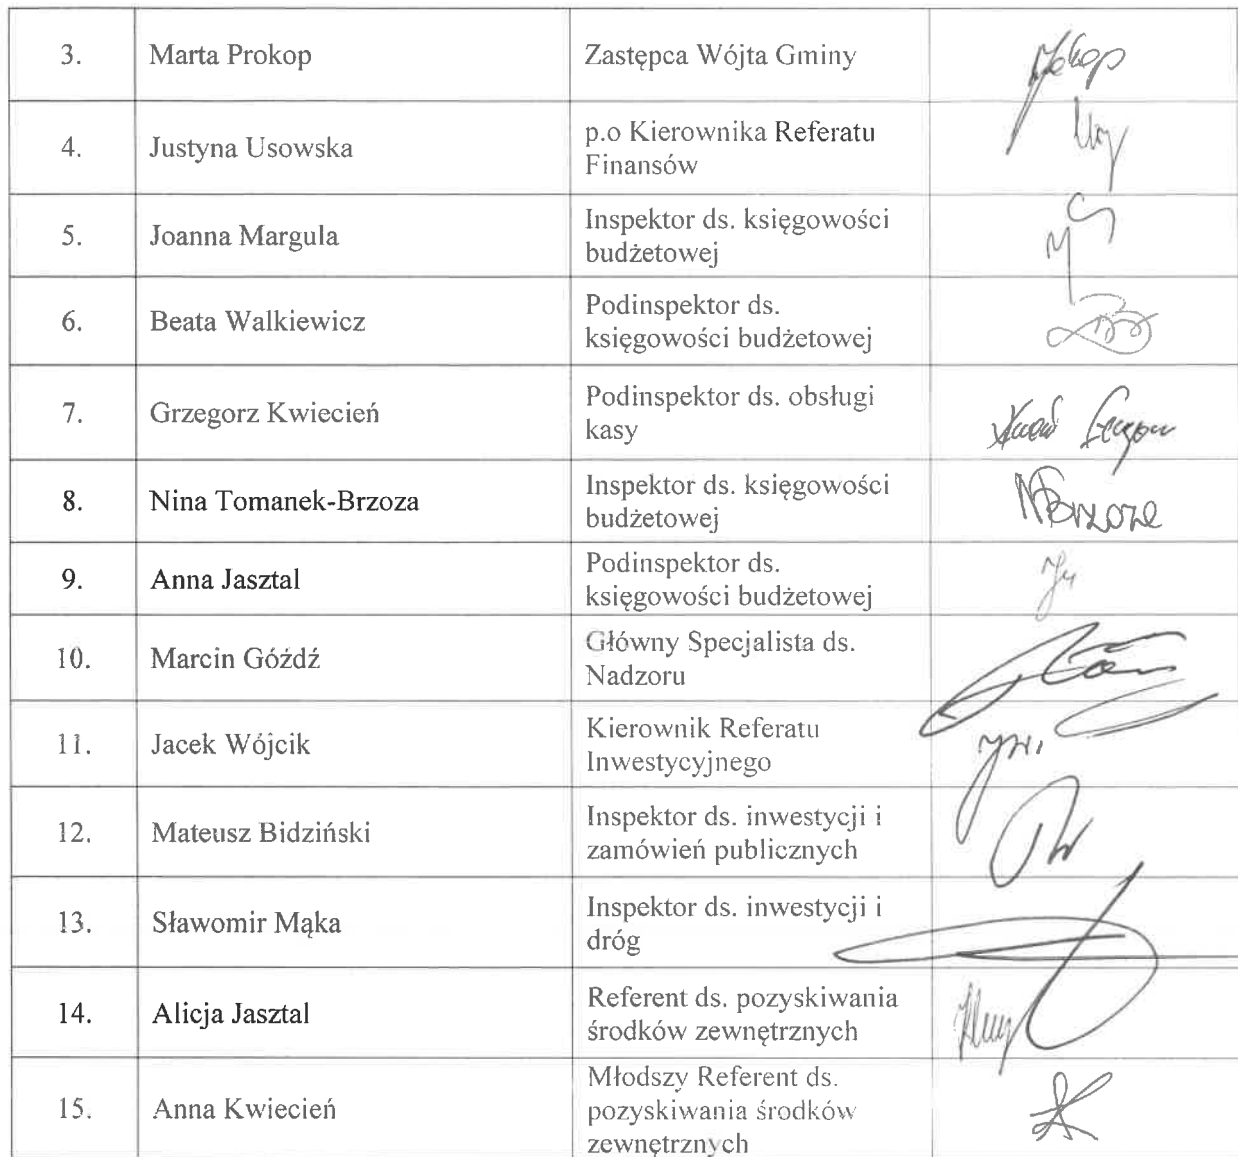 3. Marta Prokop Zastępca Wójta Gminy
4. Justyna Usowska p.o Kierownika Referatu
Finansów
5. Joanna Margula Inspektor ds. księgowości
budżetowej
6. Beata Walkiewicz Podinspektor ds.
księgowości budżetowej
7. Grzegorz Kwiecień Podinspektor ds. obsługi
kasy
8. Nina Tomanek-Brzoza Inspektor ds. księgowości
budżetowej
9. Anna Jasztal Podinspektor ds.
księgowości budżetowej
10. Marcin Góźdź Główny Specjalista ds.
Nadzoru
11. Jacek Wójcik Kierownik Referatu
Inwestycyjnego
12. Mateusz Bidziński Inspektor ds. inwestycji i
zamówień publicznych
13. Sławomir Mąka Inspektor ds. inwestycji i
dróg
14. Alicja Jasztal Referent ds. pozyskiwania
środków zewnętrznych
15. Anna Kwiecień Młodszy Referent ds.
pozyskiwania środków
zewnętrznych